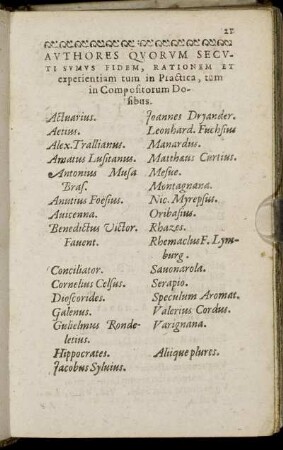 21
AVTHORES QVORVM SECV-
TI SVMVS FIDEM, RATIONEM ET
experientiam tum in Practica, tum
in Compositorum Do-
sibus.
Actuarius.
Aetius.
Alex. Trallianus.
Amatus Lusitanus.
Antonius Musa
Bras.
Anutius Foesius.
Auicenna.
Benedictus Victor.
Fauent.
Conciliator.
Cornelius Celsus.
Dioscorides.
Galenus.
Gulielmus Ronde-
letius.
Hippocrates.
Jacobus Syluius.
Joannes Dryander.
Leonhard. Fuchsius
Manardus.
Matthæus Curtius.
Mesue.
Montagnana.
Nic. Myrepsus.
Oribasius.
Rhazes.
Rhemaclus F. Lym-
burg.
Sauonarola.
Serapio.
Speculum Aromat.
Valerius Cordus.
Varignana.
Aliique plures.